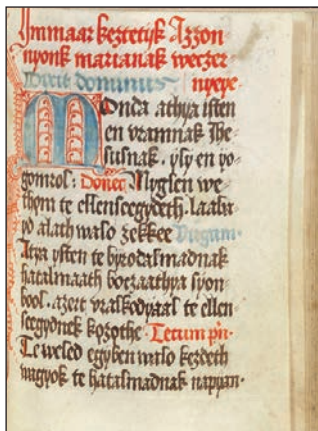 Immaar keztetijk Azzon
nyonk marianak weczer
Dixit dominus nyeye·
Monda athya isten
en vramnak Ihe
susnak· yly en yo
gomrol: Donec Myglen we
them te ellenseegydeth· laaba
yd alath walo zekkee Virgam·
Atya ysten te byrodalmadnak
hatalmaath boczaathya syon
bool· azert vraskodyaal te ellen
seegydnek kozothe· Tecum pn̄·
Te weled egyben walo kezdeth
wagyok te hatalmadnak nappan·